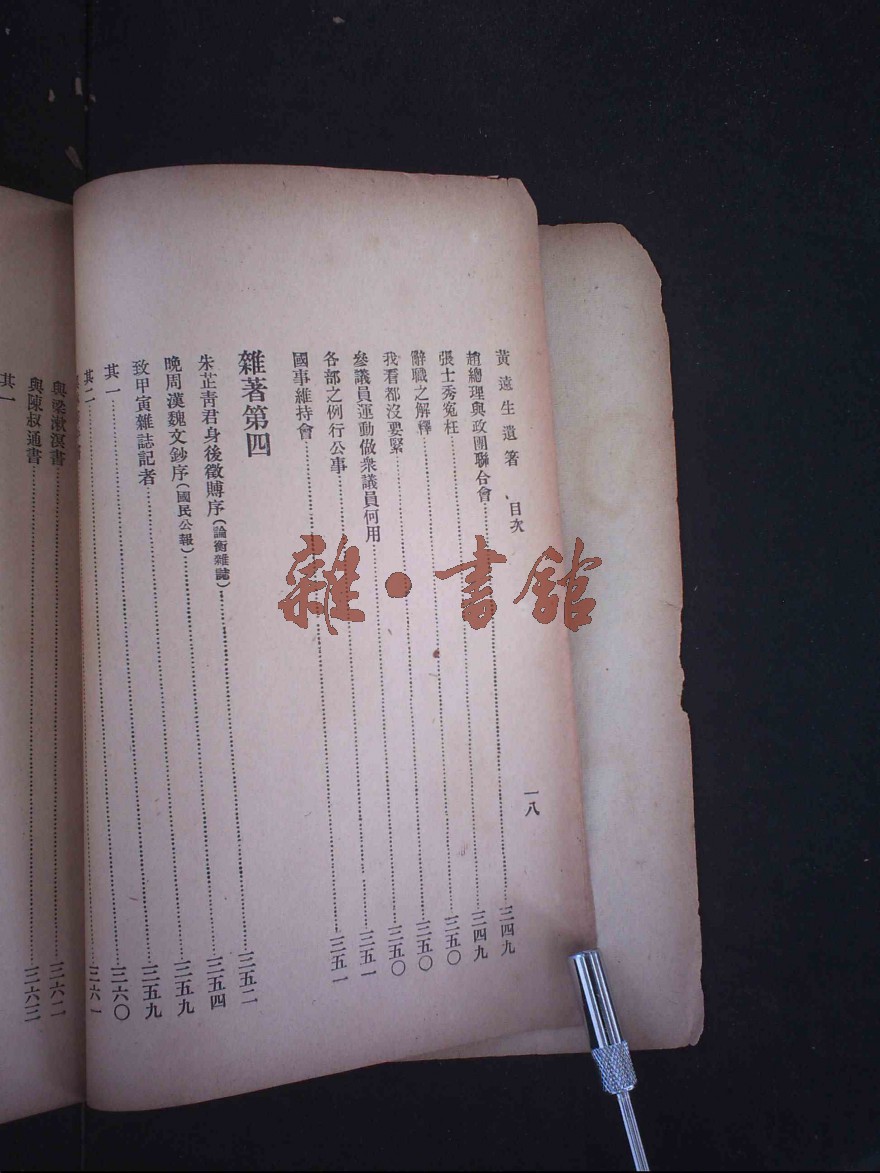 黃遠生遺著 目次 一八
趙總理與政團聯合會……三四九
張士秀冤枉……三四九
辭職之解釋……三五〇
我看都沒要緊……三五〇
參議員運動做衆議員何用……三五〇
各部之例行公事……三五一
國事維持會……三五一
雜著第四
朱芷青君身後徵賻序(論衡雜誌)……三五二
晚周漢魏文鈔序(國民公報)……三五四
致甲寅雜誌記者……三五九
其一……三五九
其二……三六〇
書……三六一
與梁漱溟書……三六二
與陳叔通書……三六三
其一
雜·書館